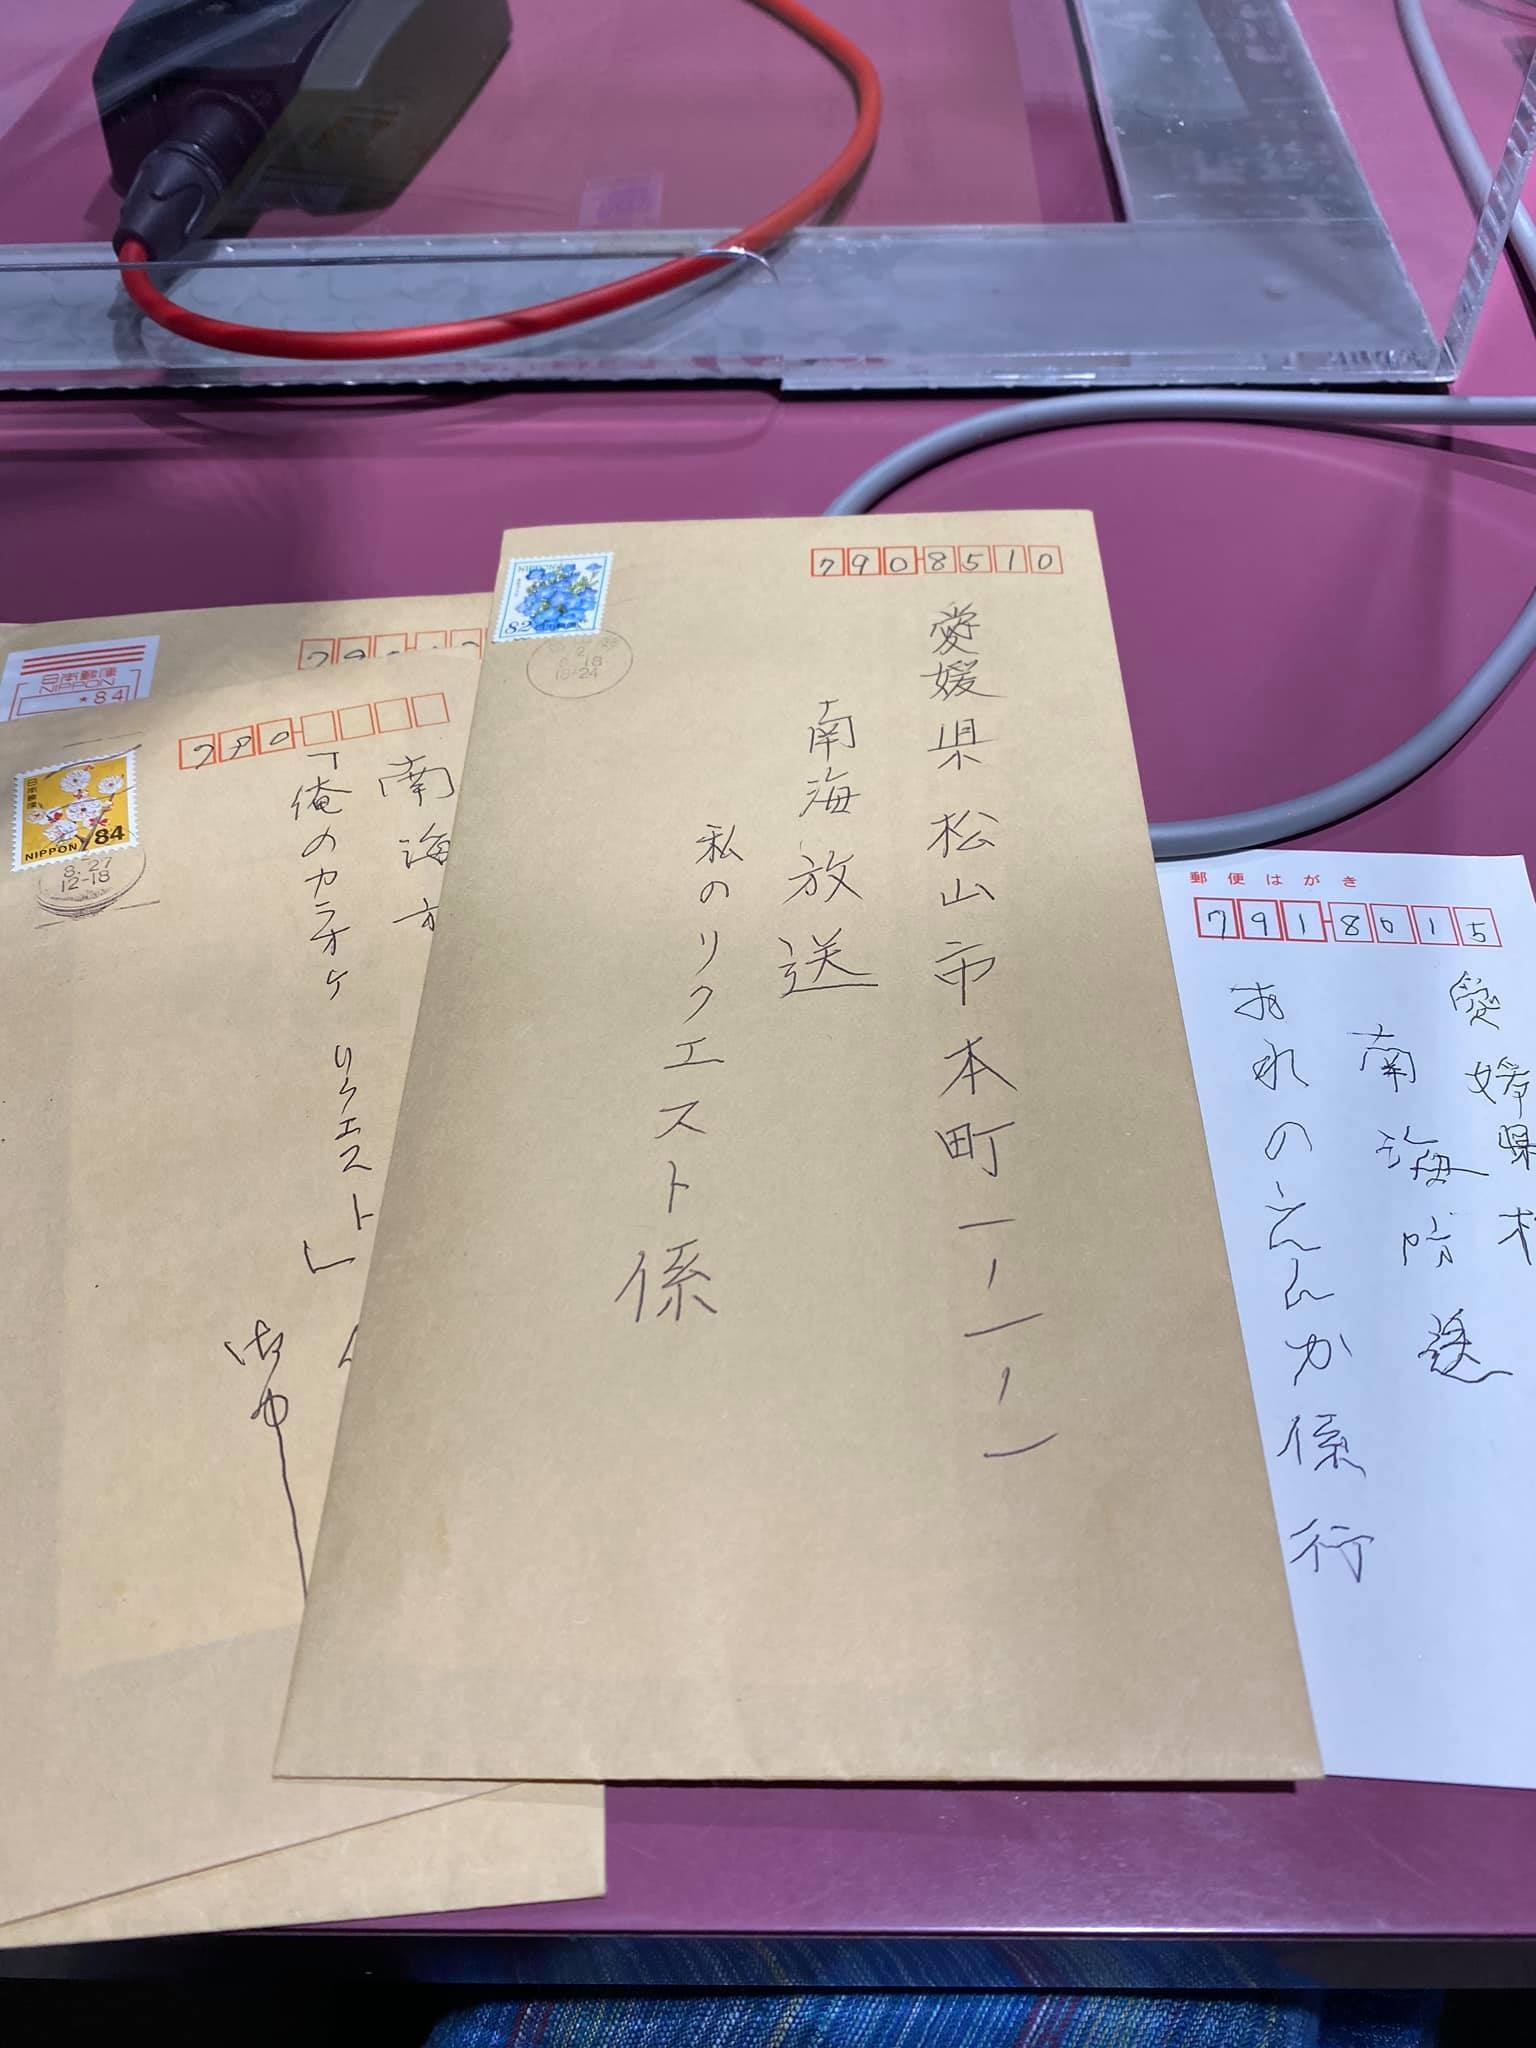 7908510
愛媛県松山市本町一ー一ー一
南海放送
私のリクエスト係
NIPPON
82
2
8.18
18-24
日本郵便
NIPPON
*84
790
南海方
「俺のカラオケ リクエスト」
御中
日本郵便
NIPPON 84
8.27
12-18
郵便はがき
791-8015
愛媛県松
南海放送
おれのえんか係行